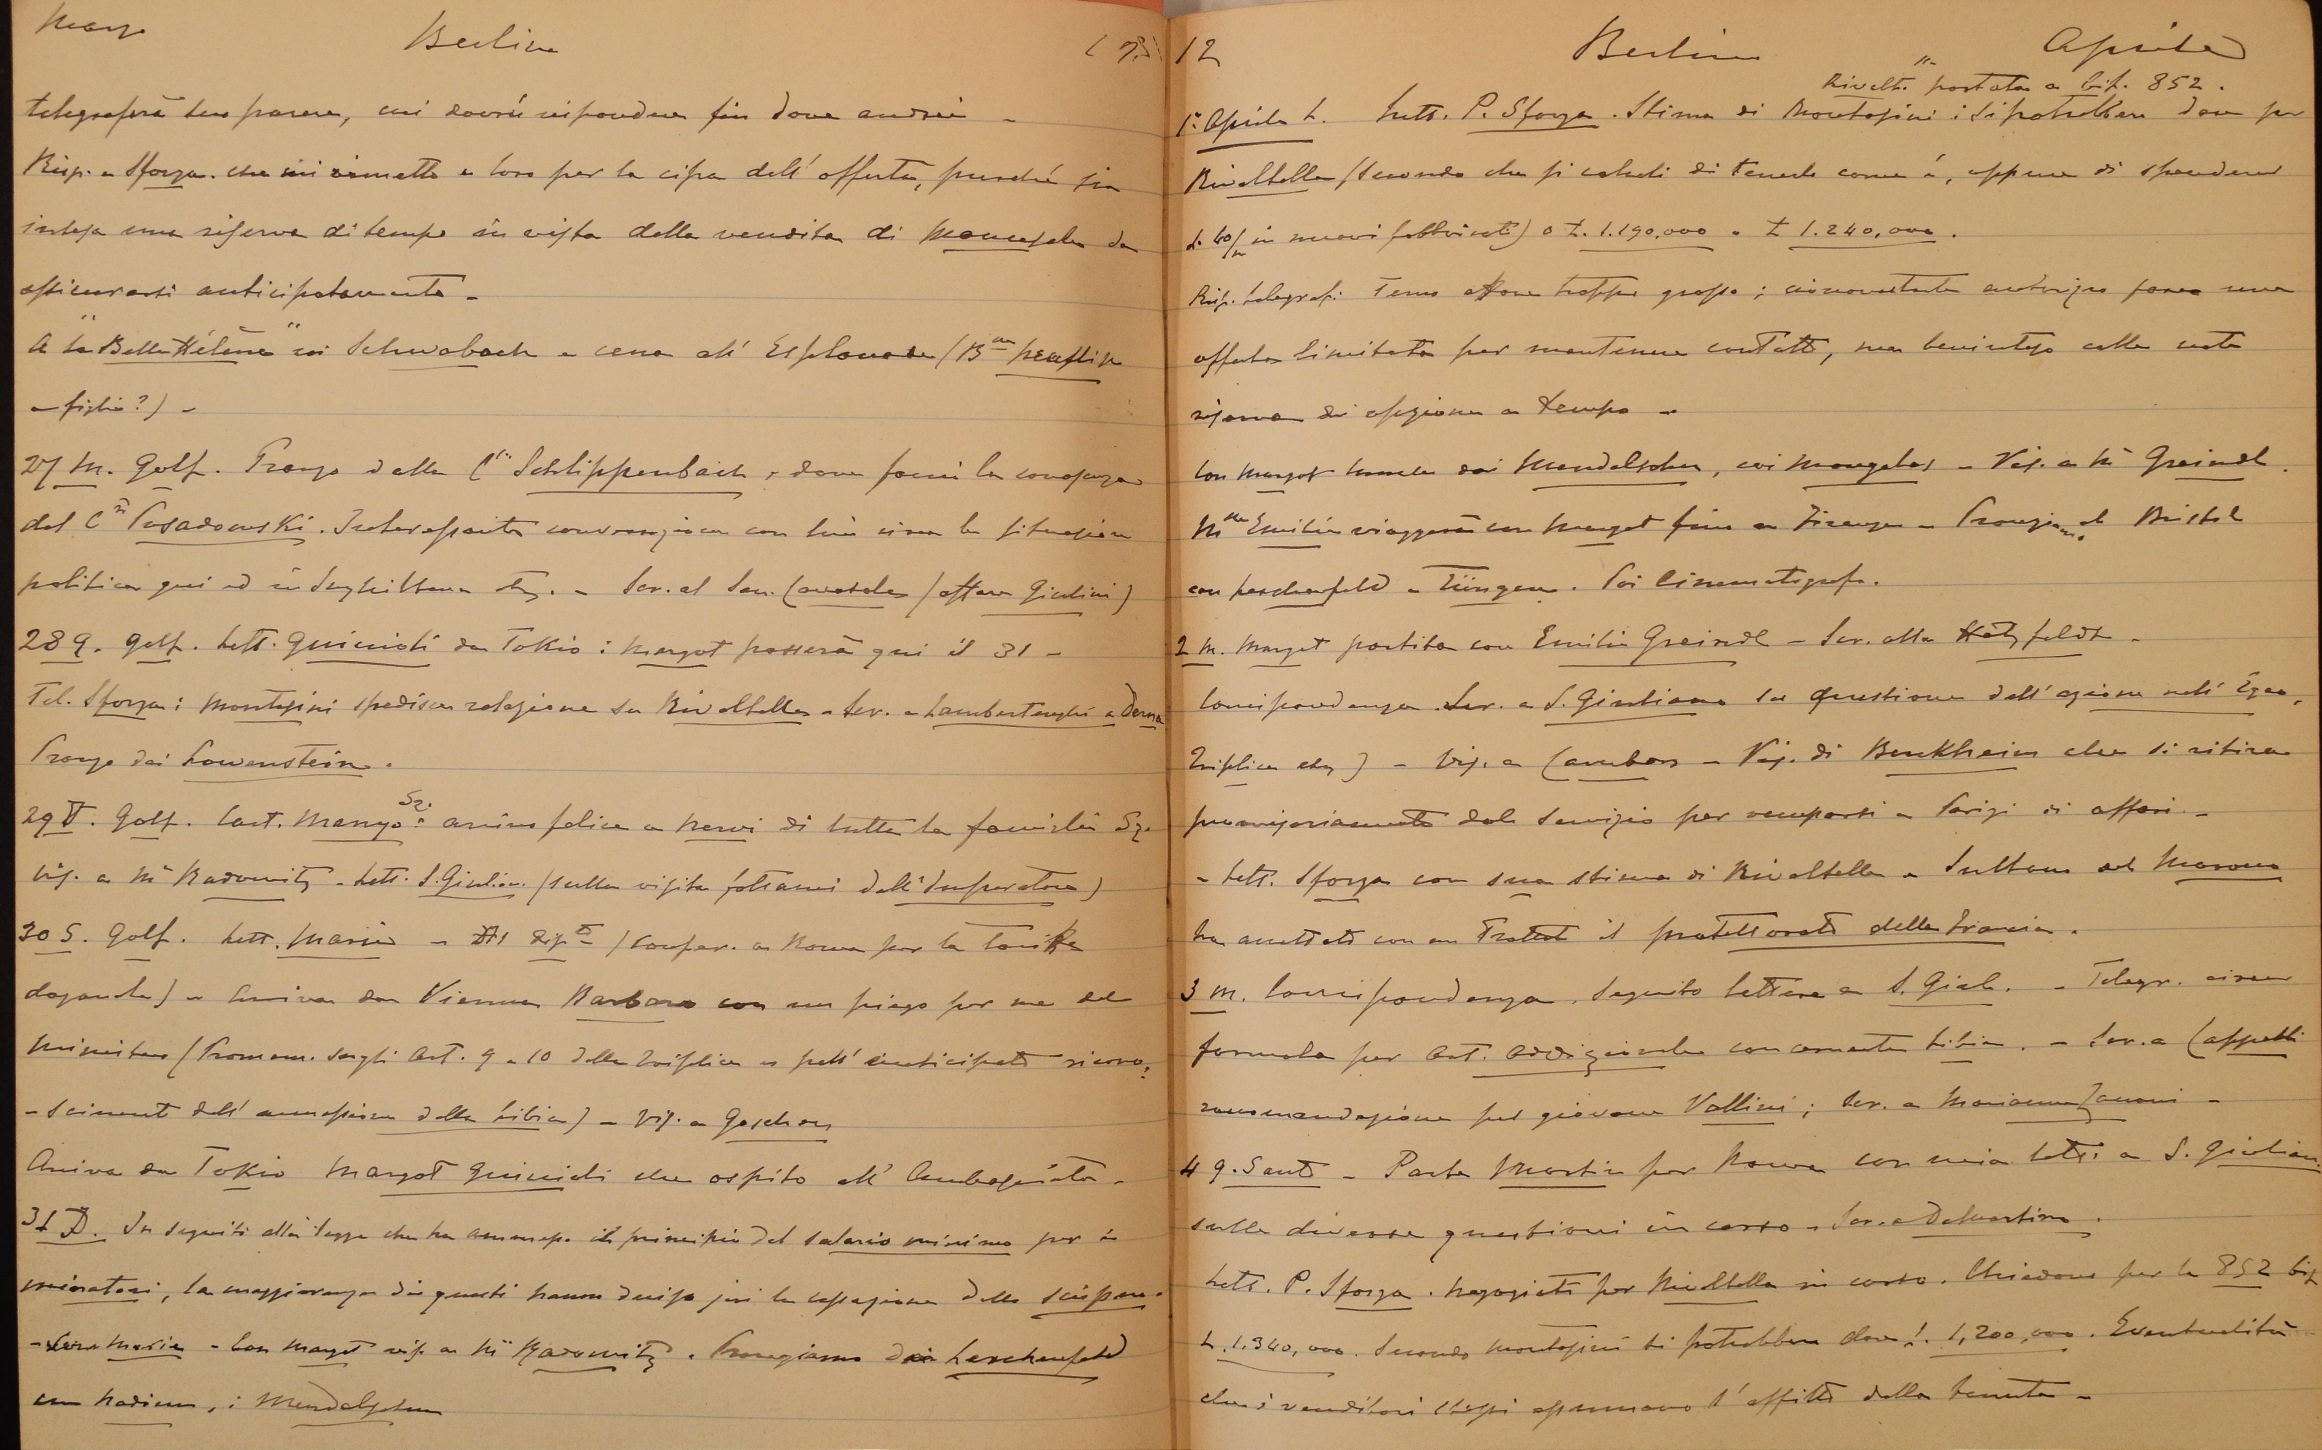 Marzo Berlino (73)
telegraferà suo parere, mi dovrà rispondere fin dove andrei -
Risp. a Sforza che mi rimetto a loro per la cifra dell' offerta, purchè sia
intesa una riserva di tempo in vista della vendita di da
assicurarsi anticipatamente -
A "la Belle Hélène" coi Schwabach e cena all' Esplanade (
e figlio?) -
27 M. Golf. Pranzo dalla C.ssa Schlippenbach, dove feci la conoscenza
del C.te Posadowski. Interessante conversazione con lui circa la situazione
politica qui ed in Inghilterra etc. - Scr. al Sen. (affare Giulini)
28 G. Golf. Lett. Guiccioli da Tokio: Margot passerà qui il 31 -
Tel. Sforza: Montesini spedisce relazione su Rivoltella - Scr. a Lambertenghi a Derna
Pranzo dai Lowenstein.
29 V. Golf. Cart. arrivo felice a Nervi di tutta la famiglia Sz.
Vis. a M.e Radowitz - Lett. S. Giulian. (sulla visita dell' Imperatore)
30 S. Golf. Lett. Maria - (Confer. a Roma per la tariffa
doganale) - Arriva da Vienna Barbaro con un piego per me del
Ministero (Promem. sugli Art. 9 e 10 della Triplice e sull' anticipato ricono-
-scimento dell' annessione della Libia) - Vis. a Goschen
Arriva da Tokio Margot Guiccioli che ospito all' Ambasciata -
31 D. In seguito alla legge che ha ammesso il principio del salario minimo per i
minatori, la maggioranza di questi hanno deciso jeri la cessazione dello sciopero.
- Con Margot vis. a M.e Radowitz. Pranziamo dai Lerchenfeld
, i Mendelssohn
12 Berlino Aprile
Rivolt. " portata a bif. 852.
1° Aprile L. Lett. P. Sforza. Stima di Montesini: Si potrebbero dare per
Rivoltella (secondo che si calcoli di tenerla come è, oppure di spendervi
L. 40/m in nuovi fabbricati) o L. 1.190,000 o L 1.240,000.
Risp. telegraf. Temo affare troppo grosso; ciononostante autorizzo fare una
offerta limitata per mantenere contatto, ma beninteso colla nota
riserva di opzione a tempo -
Con Margot dai Mendelssohn, coi - Vis. a M.e Greindl.
M.lle Emilie viaggerà con Margot fino a Firenze - Pranziamo al Bristol
con Lerchenfeld e Tüngen. Poi Cinematografo.
2 M. Margot partita con Emilie Greindl - Scr. alla Hatzfeldt -
Corrispondenza Scr. a S. Giuliano su questione dell' azione nell' Egeo,
Triplice etc) - Vis. a Cambon - Vis. di Berckheim che si ritira
provvisoriamente dal servizio per occuparsi a Parigi di affari -
- Lett. Sforza con sua stima di Rivoltella - Sultano del Marocco
ha accettato con un Trattato il protettorato della Francia.
3 M. Corrispondenza. Seguito lettera a S. Giul. - Telegr. circa
formola per Art. addizionale concernente Libia. - Scr. a Cappelli
raccomandazione pel giovane Vallini; Scr. a Marianna Zanoni -
4 G. Santo - Parte Martin per Roma con mia lett. a S. Giuliano
sulle diverse questioni in corso - Scr. a Delmartino.
Lett. P. Sforza. Negoziati per Rivoltella in corso. Chiedono per le 852 bif.
L. 1.340,000. Secondo Montesini si potrebbero dare L. 1,200,000. Eventualità
che i venditori stessi assumano l' affitto della tenuta -